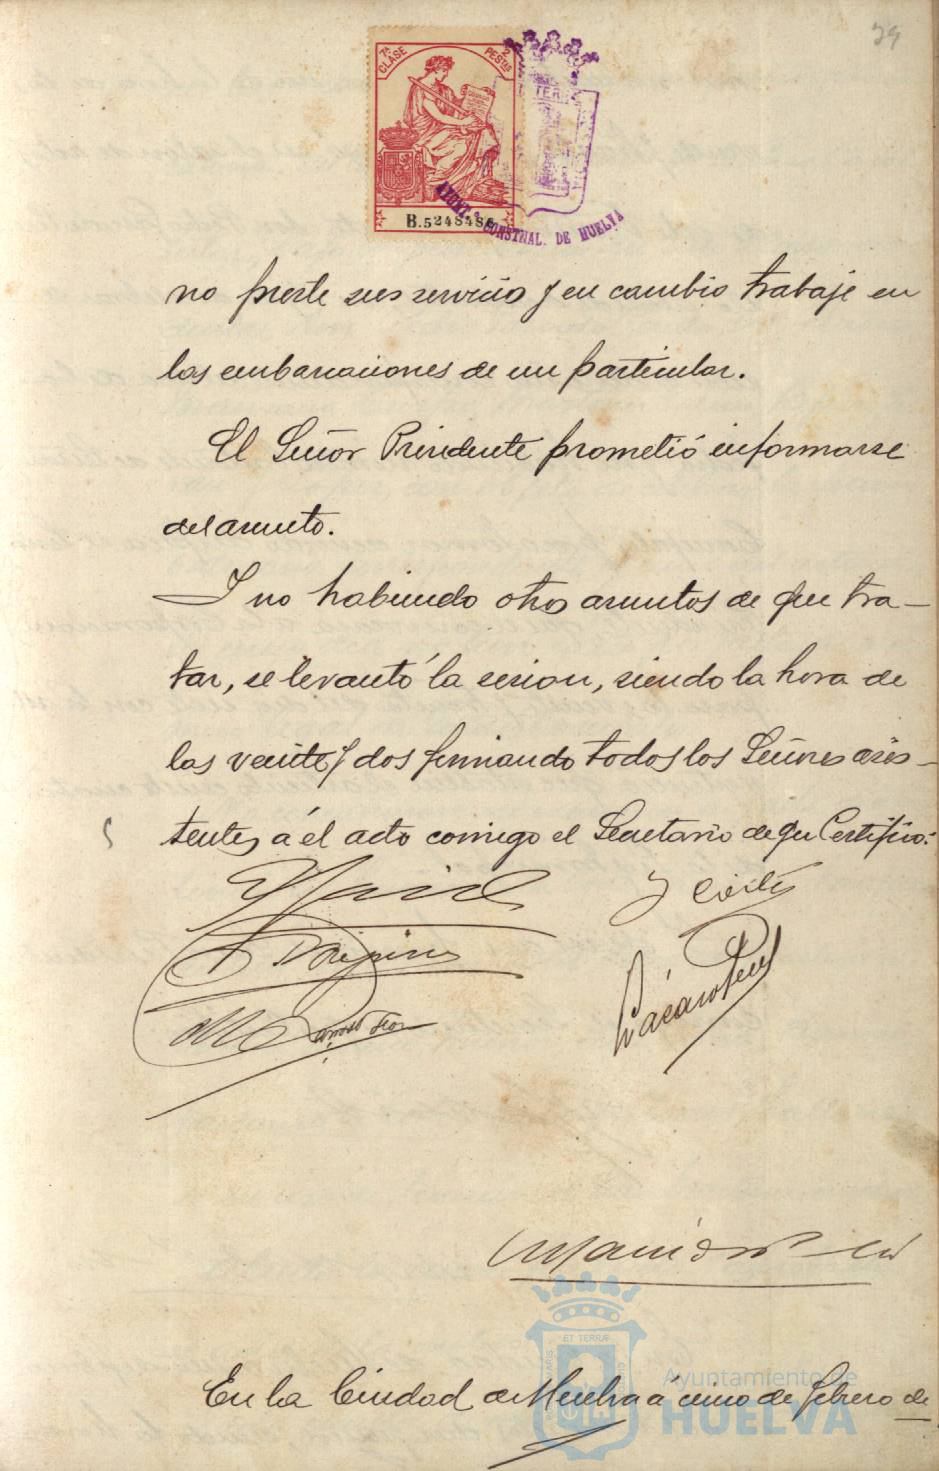 29
7ª CLASE
2 PESTAS
B.5248484
AYUNT.º CONSTNAL. DE HUELVA
no preste sus servicio y en cambio trabaje en
las embarcaciones de un particular.
El Señor Presidente prometió informarse
del asunto.
Y no habiendo otros asuntos de que tra-
tar, se levantó la sesion, siendo la hora de
las veinte y dos firmando todos los Señores asis-
tentes á el acto comigo el Secretario de que Certifico.
ET TERRÆ
Ayuntamiento de
HUELVA
En la Ciudad de Huelva á cinco de febrero de